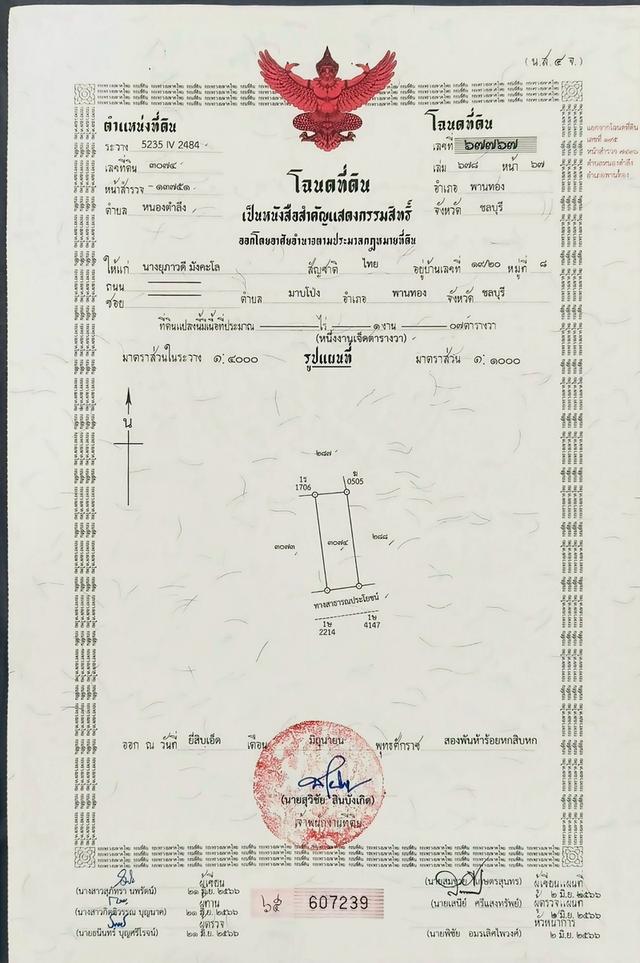 (น.ส. ๔ จ.)
ตำแหน่งที่ดิน
ระวาง 5235 IV 2484
เลขที่ดิน ๓๐๗๔
หน้าสำรวจ ๑๓๗๕๑
ตำบล หนองตำลึง
โฉนดที่ดิน
เลขที่ ๖๗๗๖๗
เล่ม ๖๗๘ หน้า ๖๗
อำเภอ พานทอง
จังหวัด ชลบุรี
แยกจากโฉนดที่ดิน
เลขที่
หน้าสำรวจ
ตำบลหนองตำลึง
อำเภอพานทอง
โฉนดที่ดิน
เป็นหนังสือสำคัญแสดงกรรมสิทธิ์
ออกโดยอาศัยอำนาจตามประมวลกฎหมายที่ดิน
ให้แก่ นางยุภาวดี มังคะโล สัญชาติ ไทย อยู่บ้านเลขที่ ๑๙/๒๐ หมู่ที่ ๘
ถนน
ซอย ตำบล มาบโป่ง อำเภอ พานทอง จังหวัด ชลบุรี
ที่ดินแปลงนี้มีเนื้อที่ประมาณ ไร่ ๑ งาน ๐๗ ตารางวา
(หนึ่งงานเจ็ดตารางวา)
มาตราส่วนในระวาง ๑: ๔๐๐๐ รูปแผนที่ มาตราส่วน ๑: ๑๐๐๐
น
๒๘๗
1ร
1706
ฆ
0505
๓๐๗๓
๓๐๗๔
๒๘๘
ทางสาธารณประโยชน์
1ษ
2214
1ษ
4147
ออก ณ วันที่ ยี่สิบเอ็ด เดือน มิถุนายน พุทธศักราช สองพันห้าร้อยหกสิบหก
(นายสุวิชัย สินบังเกิด)
เจ้าพนักงานที่ดิน
ผู้เขียน
(นางสาวสุภัทรา นพรัตน์) ๒๑ มิ.ย. ๒๕๖๖
ผู้ทาน
(นางสาวกิตติวรรณ บุญนาค) ๒๑ มิ.ย. ๒๕๖๖
ผู้ตรวจ
(นายธนินทร์ บุญศรีโรจน์) ๒๑ มิ.ย. ๒๕๖๖
๖๕ 607239
ผู้เขียนแผนที่
เกษตรสุนทร) ๒ มิ.ย. ๒๕๖๖
ผู้ตรวจแผนที่
(นายเสนีย์ ศรีแสงทรัพย์) ๒ มิ.ย. ๒๕๖๖
หัวหน้าการ
(นายพิชัย อมรเลิศไพวงศ์) ๒ มิ.ย. ๒๕๖๖